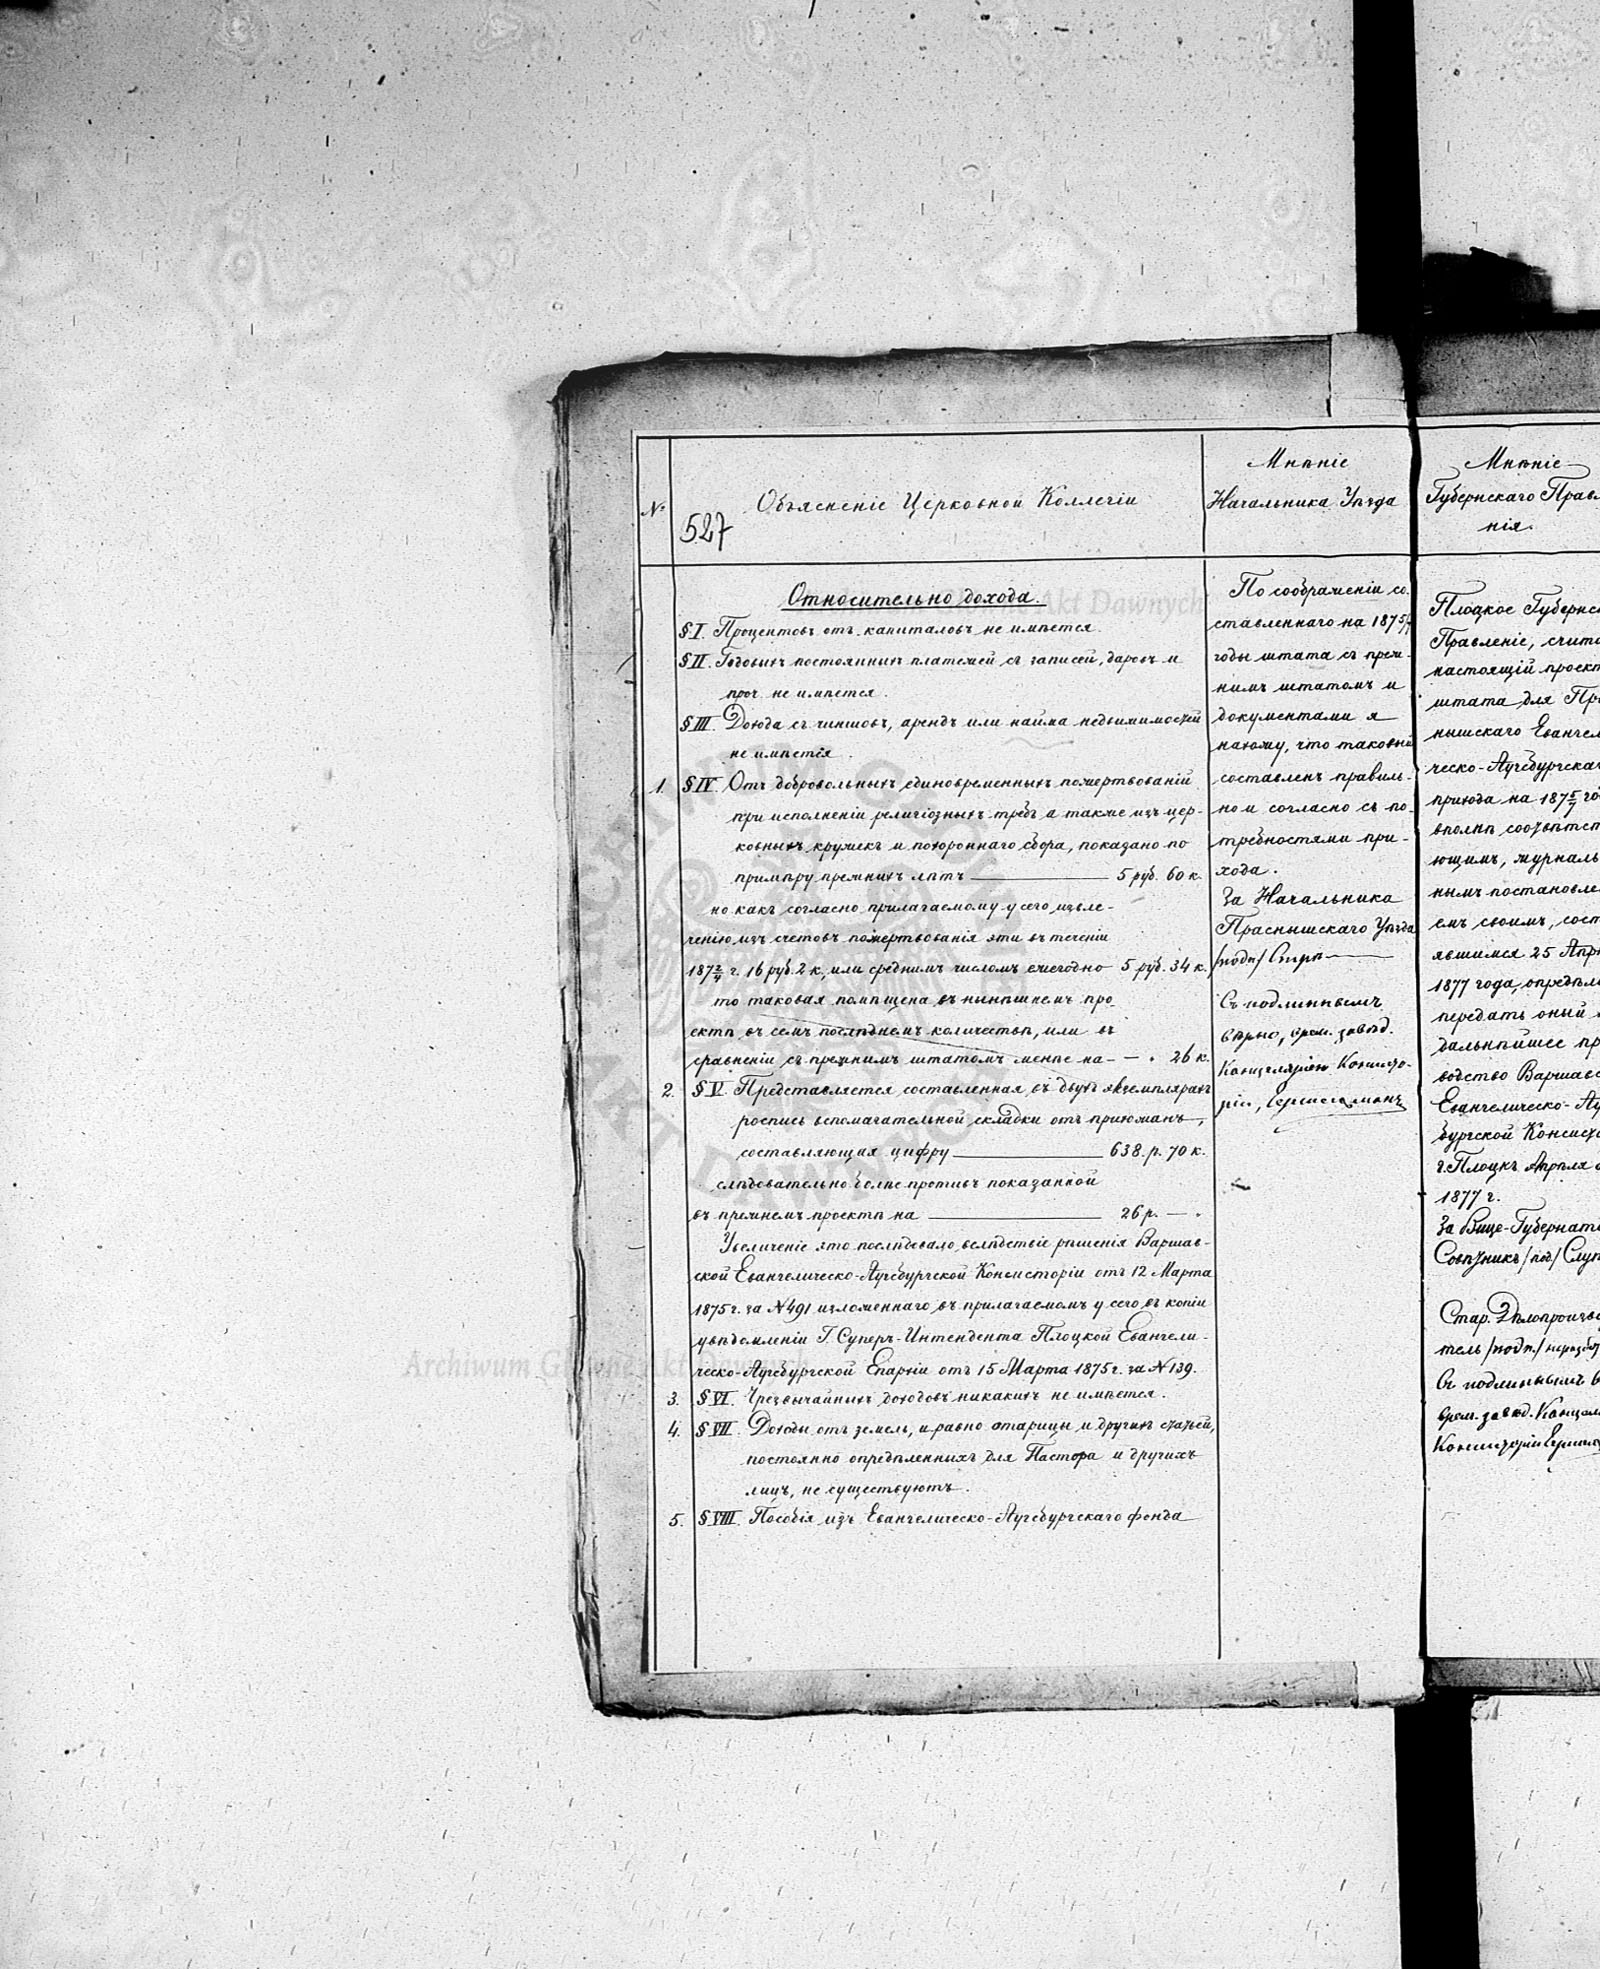 №
527
Объясненіе Церковной Коллегіи
Относительно дохода.
§ I. Процентовъ отъ капиталовъ не имѣется.
§ II. Годовыхъ постоянныхъ платежей съ записей, даровъ и
проч. не имѣется.
§ III. Дохода съ чиншовъ, арендъ или найма недвижимостей
не имѣется.
1. § IV. Отъ добровольныхъ единовременныхъ пожертвованій
при исполненіи религіозныхъ требъ а также изъ цер-
ковныхъ кружекъ и похороннаго сбора, показано по
примѣру прежнихъ лѣтъ — 5 руб. 60 к.
но какъ согласно прилагаемому у сего извле-
ченію изъ счетовъ пожертвованія эти въ теченіи
187 2/4 г. 16 руб. 2 к., или среднимъ числомъ ежегодно 5 руб. 34 к.
то таковая помѣщена въ нынѣшнемъ про-
ектѣ въ семъ послѣднемъ количествѣ, или въ
сравненіи съ прежнимъ штатомъ менѣе на — „ 26 к.
2. § V. Представляется составленная въ двухъ экземплярахъ
роспись вспомагательной складки отъ прихожанъ,
составляющая цифру — 638. р. 70 к.
слѣдовательно болѣе противъ показанной
въ прежнемъ проектѣ на — 26 р. — „
Увеличеніе это послѣдовало вслѣдствіе рѣшенія Варшав-
ской Евангелическо-Аугсбургской Консисторіи отъ 12 Марта
1875 г. за № 491 изложеннаго въ прилагаемомъ у сего въ копіи
увѣдомленіи Г. Суперъ-Интендента Плоцкой Евангели-
ческо-Аугсбургской Епархіи отъ 15 Марта 1875 г. за № 139.
3. § VI. Чрезвычайныхъ доходовъ никакихъ не имѣется.
4. § VII. Доходы отъ земель, и равно отарицы и другихъ статьей,
постоянно опредѣленныхъ для Пастора и другихъ
лицъ, не существуютъ.
5. § VIII. Пособія изъ Евангелическо-Аугсбургскаго фонда
Мнѣніе
Начальника Уѣзда
По соображеніи со-
ставленнаго на 1875/7
годы штата съ преж-
нимъ штатомъ и
документами я
нахожу, что таковый
составленъ правиль-
но и согласно съ по-
требностями при-
хода.
За Начальника
Праснышскаго Уѣзда
/подп/
Съ подлиннымъ
вѣрно, врем. завѣд.
Канцеляріею Консисто-
ріи,
Мнѣніе
Губернскаго Правл
нія.
Плоцкое Губернс
Правленіе, счита
настоящій проект
штата для Пра
нышскаго Евангел
ческо-Аугсбургскаг
прихода на 187 5/7 го
вполнѣ соотвѣтст
ющимъ, журналь
нымъ постановле
емъ своимъ, сост
явшимся 25 Апр
1877 года, опредѣл
передать оный
дальнѣйшее пр
водство Варшавс
Евангелическо-Ау
бургской Консист
г. Плоцкъ Апрѣля
1877 г.
За Вице-Губернато
Совѣтникъ /под/
Стар. Дѣлопроизво
тель /подп./ неразб
Съ подлиннымъ в
врем. завѣд. Канцел
Консисторіи
Archiwum Główne Akt Dawnych